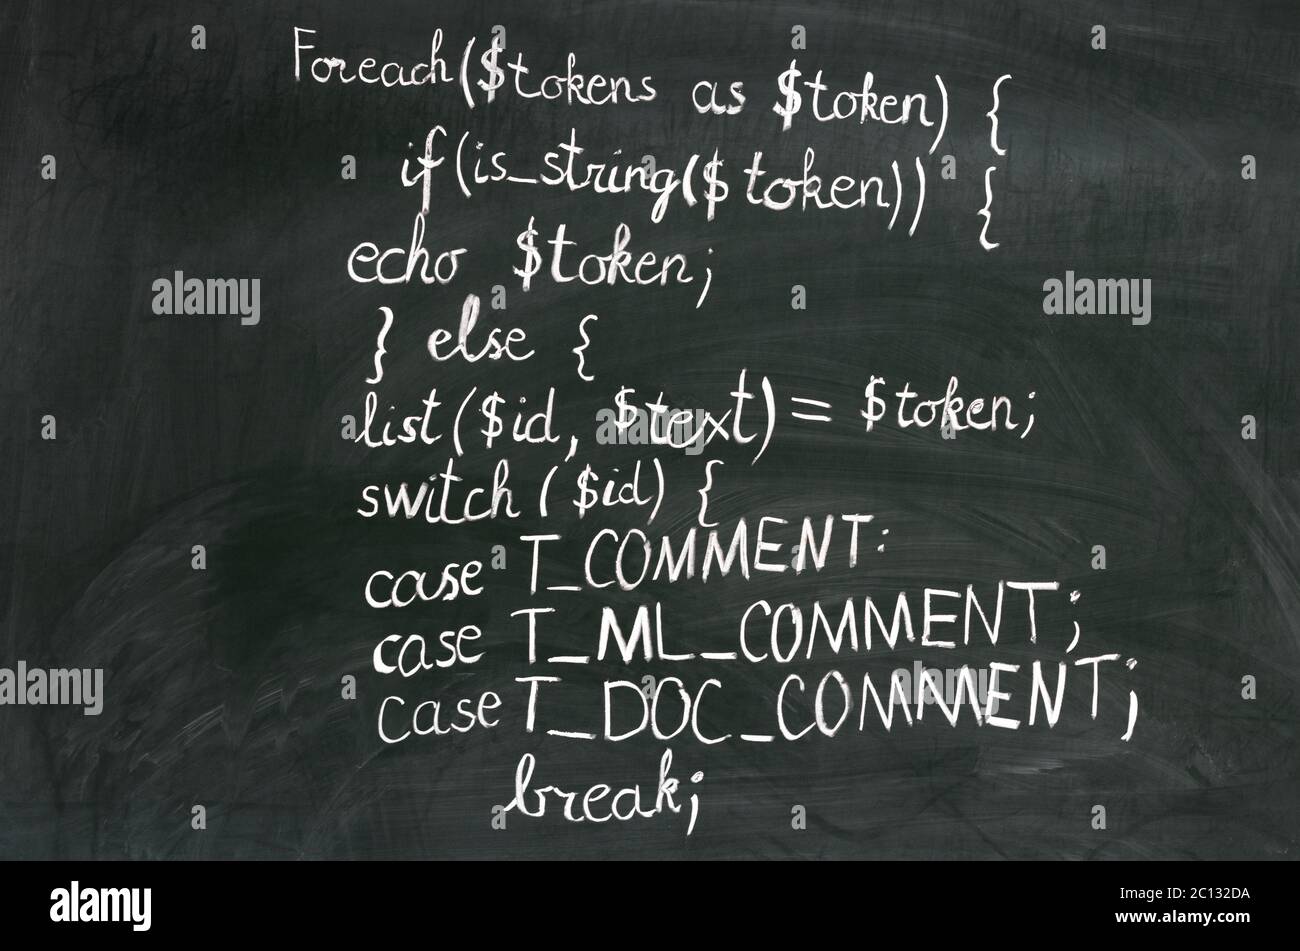 Foreach($tokens as $token) {
if(is_string($token)) {
echo $token;
} else {
list($id, $text) = $token;
switch ($id) {
case T_COMMENT:
case T_ML_COMMENT;
case T_DOC_COMMENT;
break;
a alamy
a alamy
a alamy
alamy
Image ID: 2C132DA
www.alamy.com